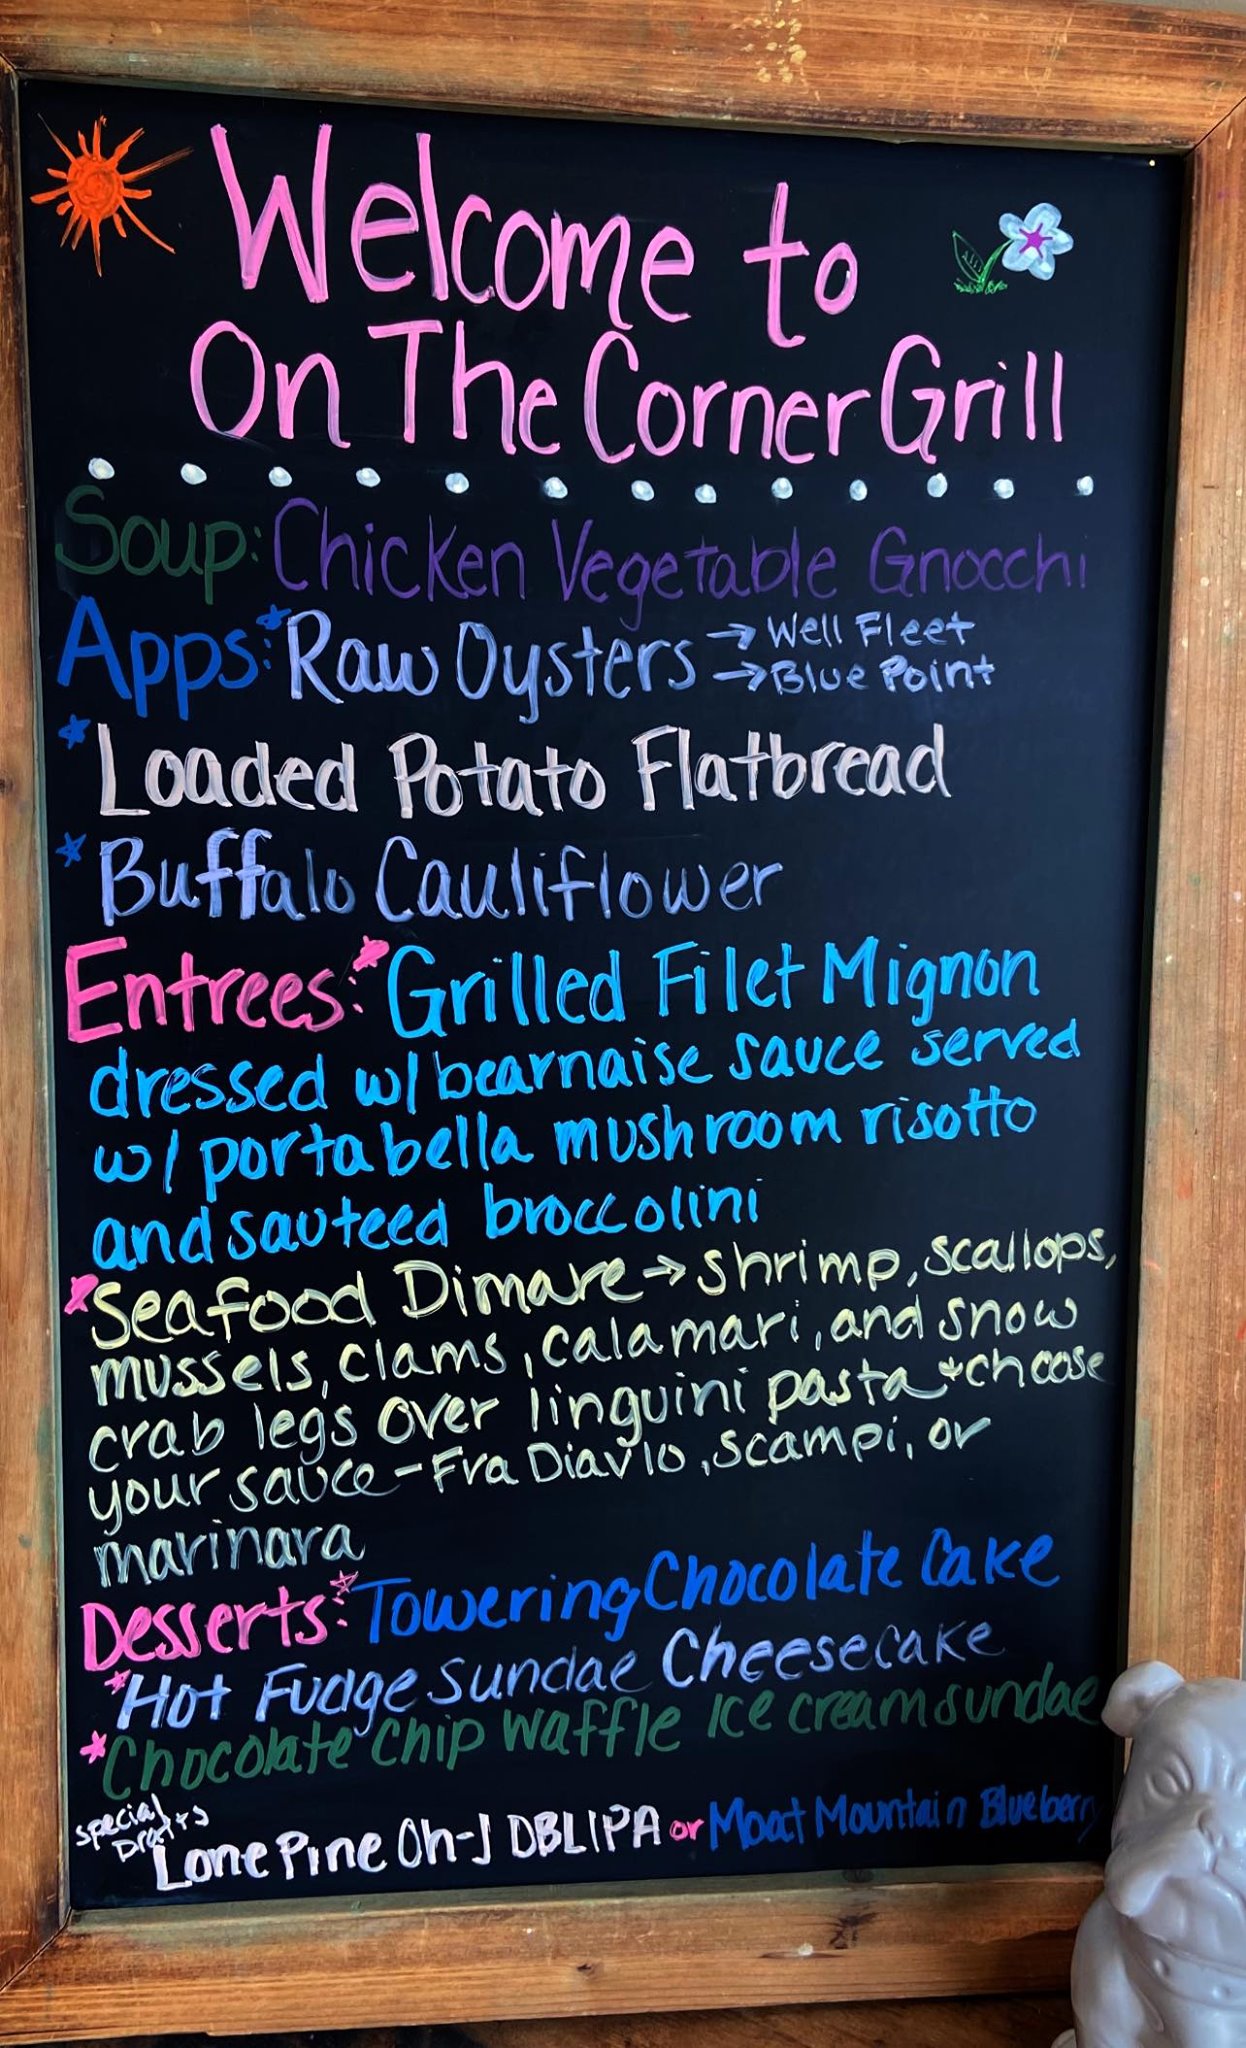 Welcome to
On The Corner Grill
Soup: Chicken Vegetable Gnocchi
Apps: *Raw Oysters → Well Fleet
→ Blue Point
*Loaded Potato Flatbread
*Buffalo Cauliflower
Entrees: *Grilled Filet Mignon
dressed w/ bearnaise sauce served
w/ portabella mushroom risotto
and sauteed broccolini
*Seafood Dimare → shrimp, scallops,
mussels, clams, calamari, and snow
crab legs over linguini pasta *choose
your sauce - Fra Diavlo, scampi, or
marinara
Desserts: *Towering Chocolate Cake
*Hot Fudge Sundae Cheesecake
*Chocolate Chip Waffle Ice cream sundae
special
Drafts
Lone Pine Oh-J DBLIPA or Moat Mountain Blueberry